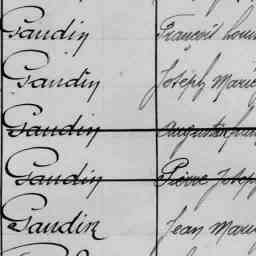 Gaudin François Loui
Gaudin Joseph Marie
Gaudin Augustin
Gaudin Pierre Josep
Gaudin Jean Marie